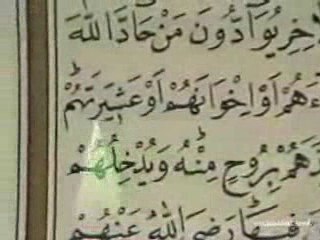 لاٰخِرِ يُوَآدُّونَ مَنْ حَآدَّ اللّٰهَ
ءَهُمْ اَوْ اِخْوَانَهُمْ اَوْ عَشِيرَتَهُمْ
دَهُمْ بِرُوحٍ مِنْهُ وَيُدْخِلُهُمْ
رَضِيَ اللّٰهُ عَنْهُمْ